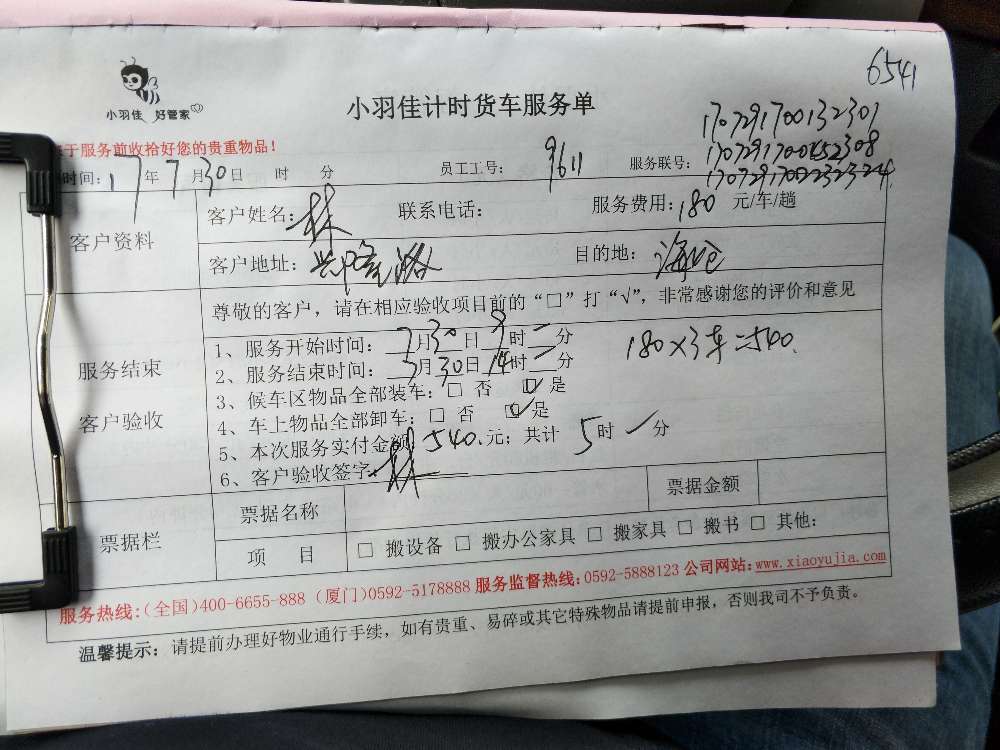 6541
小羽佳 好管家
小羽佳计时货车服务单
1707291700132301
于服务前收拾好您的贵重物品！
时间：17年7月30日 时 分 员工工号：9611 服务联号：
客户资料 客户姓名：林 联系电话： 服务费用：180 元/车/趟
客户地址：兴隆路 目的地：海沧
尊敬的客户，请在相应验收项目前的“□”打“√”，非常感谢您的评价和意见
服务结束
客户验收
1、服务开始时间：7月30日9时 分
180×3车=540.
2、服务结束时间：7月30日14时 分
3、候车区物品全部装车：□ 否 ☑ 是
4、车上物品全部卸车：□ 否 ☑ 是
5、本次服务实付金额：540.元；共计 5时 分
6、客户验收签字：林
票据栏 票据名称 票据金额
项 目 □ 搬设备 □ 搬办公家具 □ 搬家具 □ 搬书 □ 其他：
服务热线：（全国）400-6655-888 （厦门）0592-5178888 服务监督热线：0592-5888123 公司网站：www.xiaoyujia.com
温馨提示：请提前办理好物业通行手续，如有贵重、易碎或其它特殊物品请提前申报，否则我司不予负责。